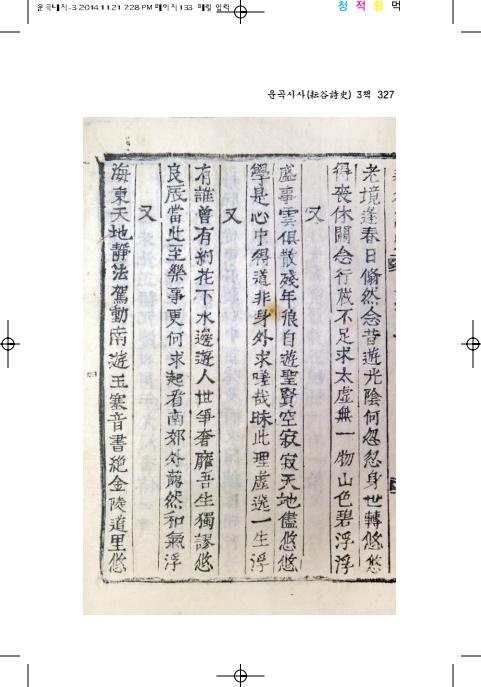 운곡대지-3 2014.11.21 7:28 PM 페이지133 매릴 인력
청 적 황 먹
운곡시사(耘谷詩史) 3책 327
老境逢春日翛然念昔遊光陰何忽忽身世轉悠悠
得喪休關念行藏不足求太虛無一物山色碧浮浮
又
盛事雲俱散殘年狼自遊聖賢空寂寂天地儘悠悠
學是心中得道非身外求嗟哉昧此理虛過一生浮
又
有誰曾有約花下水邊遊人世爭奢靡吾生獨謬悠
良辰當此至樂事更何求起看南郊外藹然和氣浮
又
海東天地靜法駕動南遊玉塞音書絶金陵道里悠